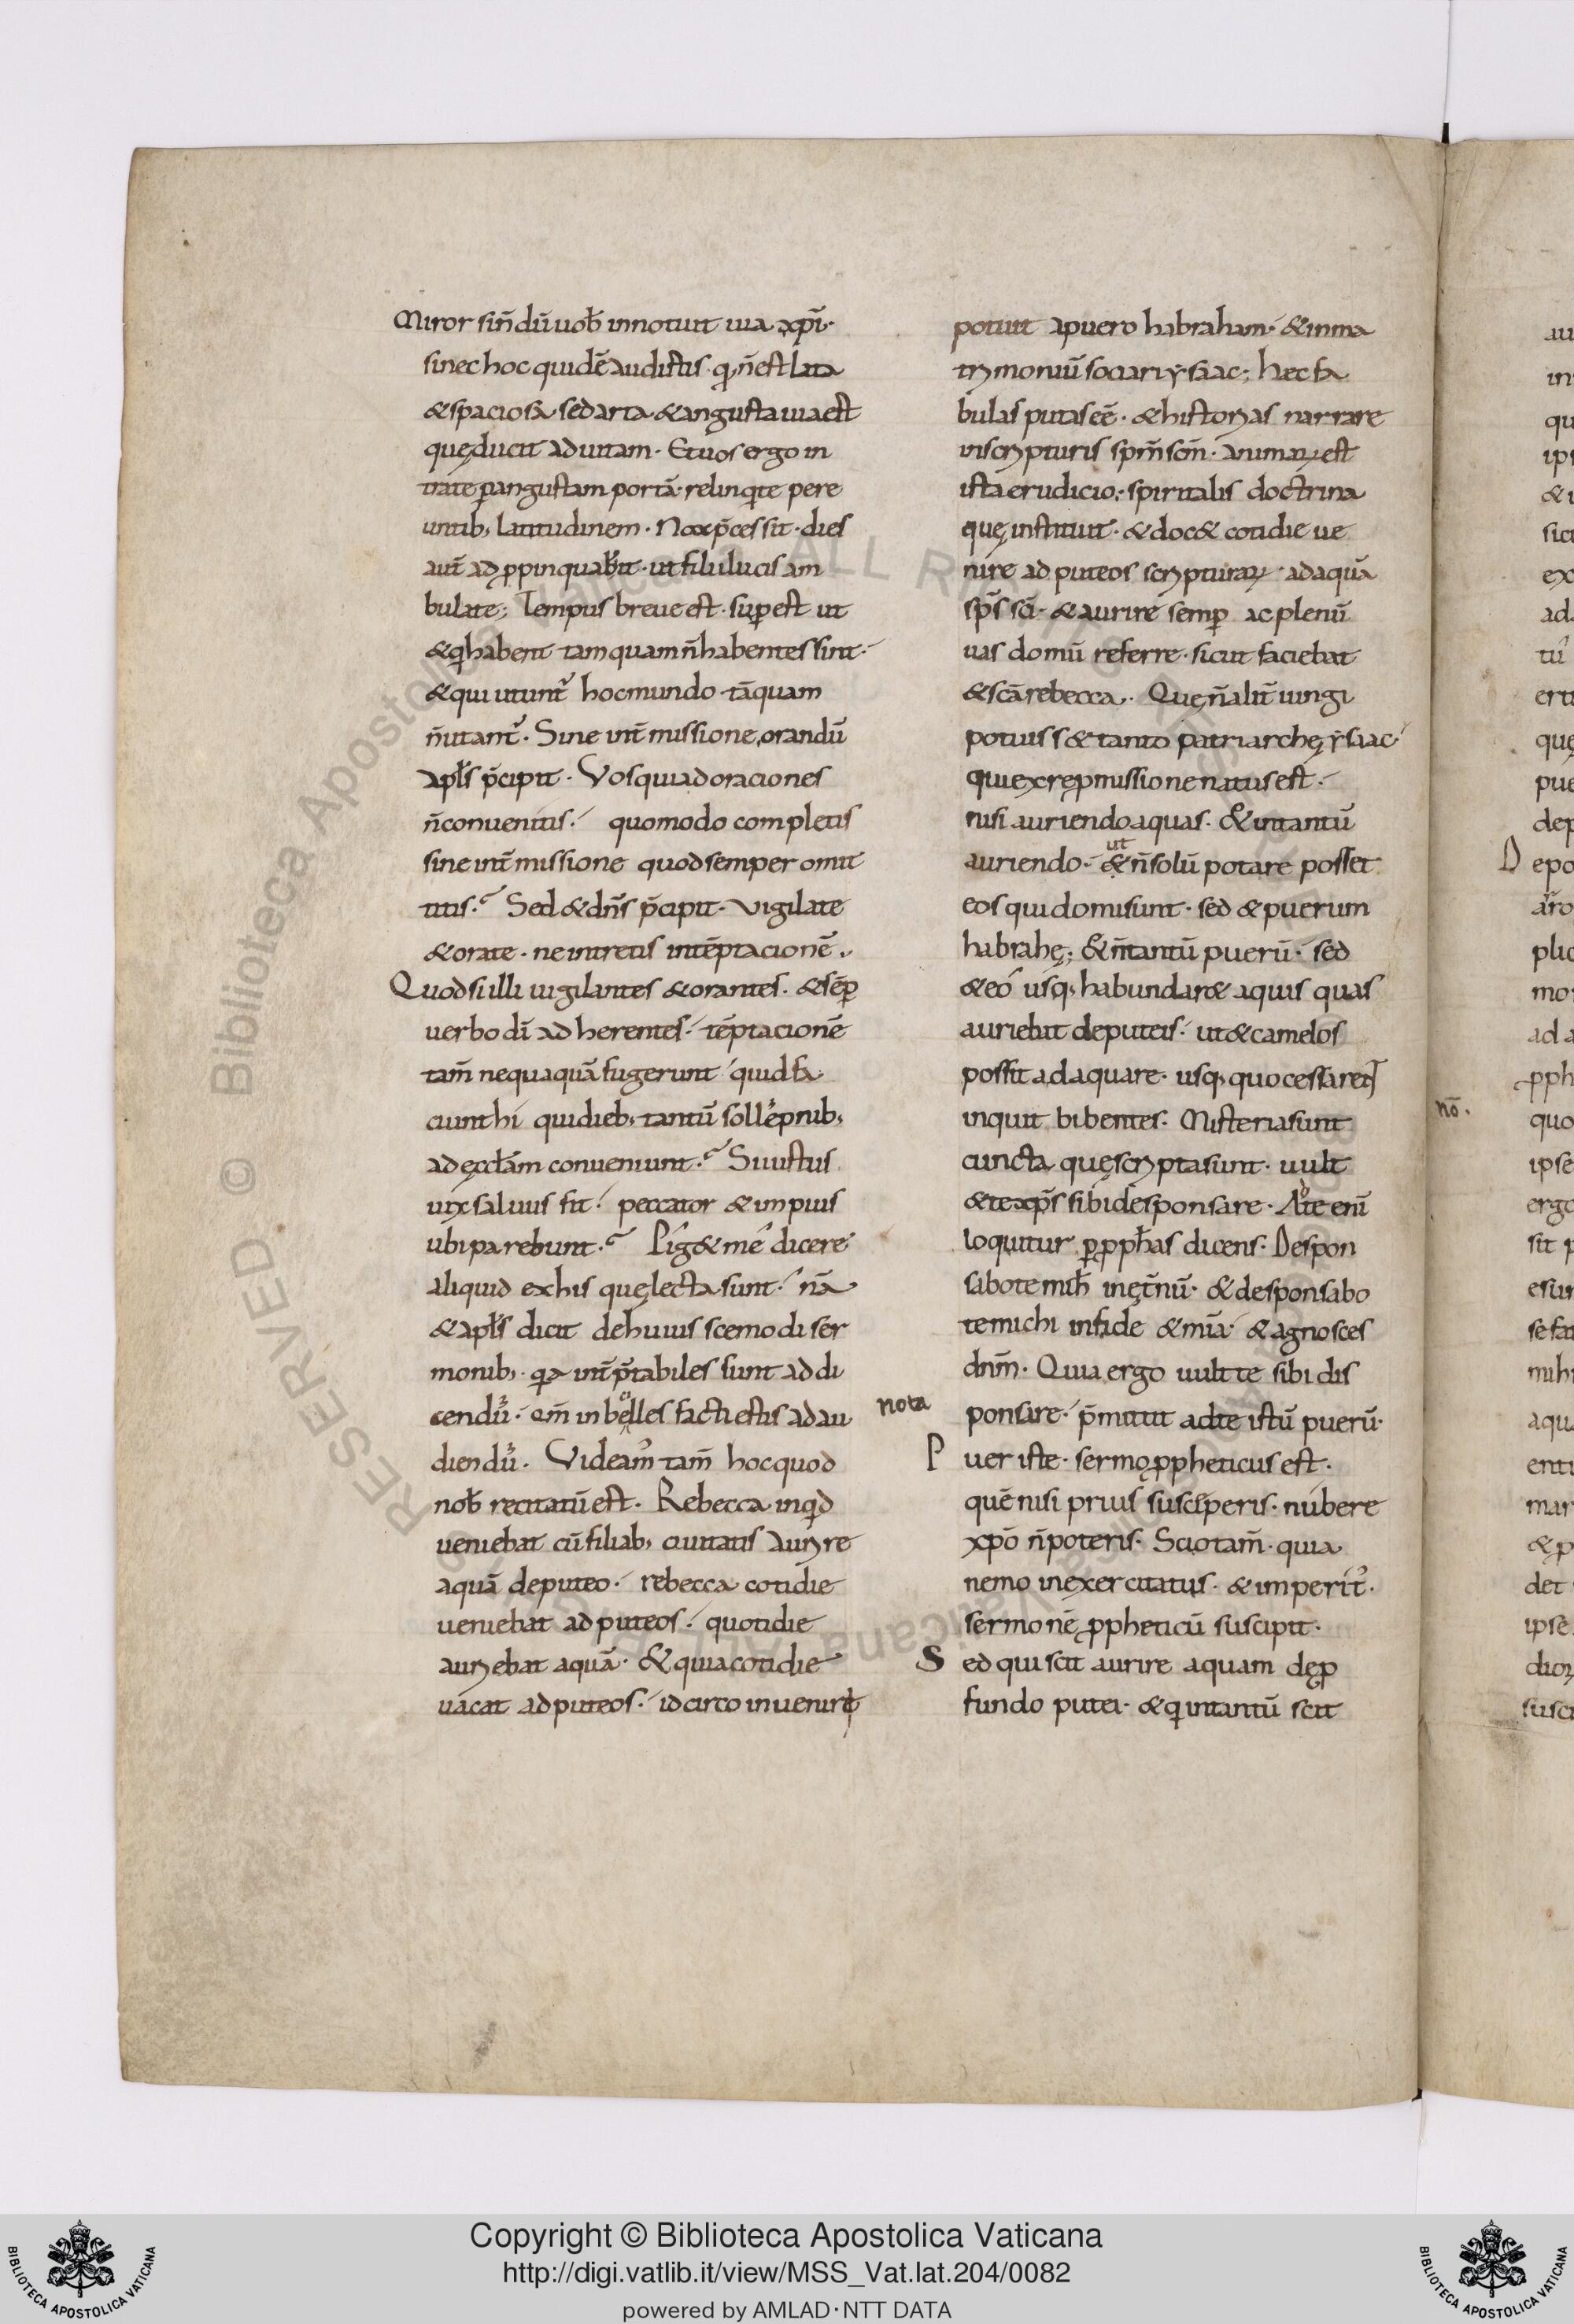 Miror si n̄dū uob̄ innotuit uia xp̄i·
sinec hoc quidē audistis· q n̄est lata
& spaciosa· sed arta & angusta uia est
quę ducit ad uitam· Et uos ergo in
trate p angustam portā· relinqite pere
untib; latitudinem· Nox p̄cessit· dies
aut̄ adppinquabit· ut filii lucis am
bulate; Tempus breue est· supest ut
& qi habent tamquam n̄ habentes sint·
& qui utunt̉ hoc mundo· tāquam
n̄ utant̉· Sine int̄missione orandū
apl̄s p̄cipit· Vos qui ad oraciones
n̄ conuenitis· quomodo completis
sine int̄missione quod semper omit
titis·? Sed & dn̄s p̄cipit· Vigilate
& orate· ne intretis in tēptacionē·
Quod si illi uigilantes & orantes· & sēp
uerbo dī adherentes· tēptacionē
tam̄ nequaquā fugerunt quid fa
ciunt hi qui dieb; tantū sollēpnib;
ad ęccl̄am conueniunt·? Si iustus
uix saluus fit· peccator & impius
ubi parebunt·? Pig& mé dicere
aliquid ex his quę lecta sunt· nā
& apl̄s dicit de huius scemodi ser
monib;· qa int̄p̄tabiles sunt ad di
cendū· em̄ inbelles facti estis ad au
diendū· Videam̉ tam̄ hoc quod
nob̄ recitatū est· Rebecca inqid
ueniebat cū filiab; ciuitatis aurire
aquā de puteo· rebecca cotidie
ueniebat ad puteos· quotidie
auriebat aquā· & quia cotidie
uacat ad puteos· idcirco inueniri
potuit a puero habraham· & in ma
trimoniū sociari ysaac; hec fa
bulas putas eē· & historias narrare
in scripturis spm̄ scm̄· animarꝝ est
ista erudicio; spiritalis doctrina
quę instituit· & doc& cotidie ue
nire ad puteos scripturarꝝ· ad aquā
sps̄ scī· & aurire semp ac plenū
uas domū referre· sicut faciebat
& scā rebecca· Quę n̄ alit̄ iungi
potuiss& tanto patriarchę ysaac
qui ex repmissione natus est·
nisi auriendo aquas· & in tantū
ut
auriendo· & n̄ solū potare posset
eos qui domi sunt· sed & puerum
habrahę; & n̄ tantū puerū· sed
& eo usq; habundar& aquis quas
auriebat de puteis· ut & camelos
possit adaquare· usq; quo cessarent
inquit bibentes· Misteria sunt
cuncta quę scripta sunt· uult
& te xp̄s sibi desponsare· Ad te eni
loquitur p pph̄as dicens· Despon
sabo te mih̄ in ęt̄nū· & desponsabo
te michi in fide & mīa· & agnosces
dnm̄· Quia ergo uult te sibi dis
nota
ponsare· p̄mittit ad te istū puerū·
Puer iste· sermo ppheticus est·
quē nisi prius susceperis· nubere
xpō n̄ poteris· Scio tam̄· quia
nemo inexercitatus· & imperit̉·
sermonē ppheticū suscipit·
Sed qui scit aurire aquam de p
fundo putei· & qi in tantū scit
nō·
Copyright © Biblioteca Apostolica Vaticana
http://digi.vatlib.it/view/MSS_Vat.lat.204/0082
powered by AMLAD·NTT DATA